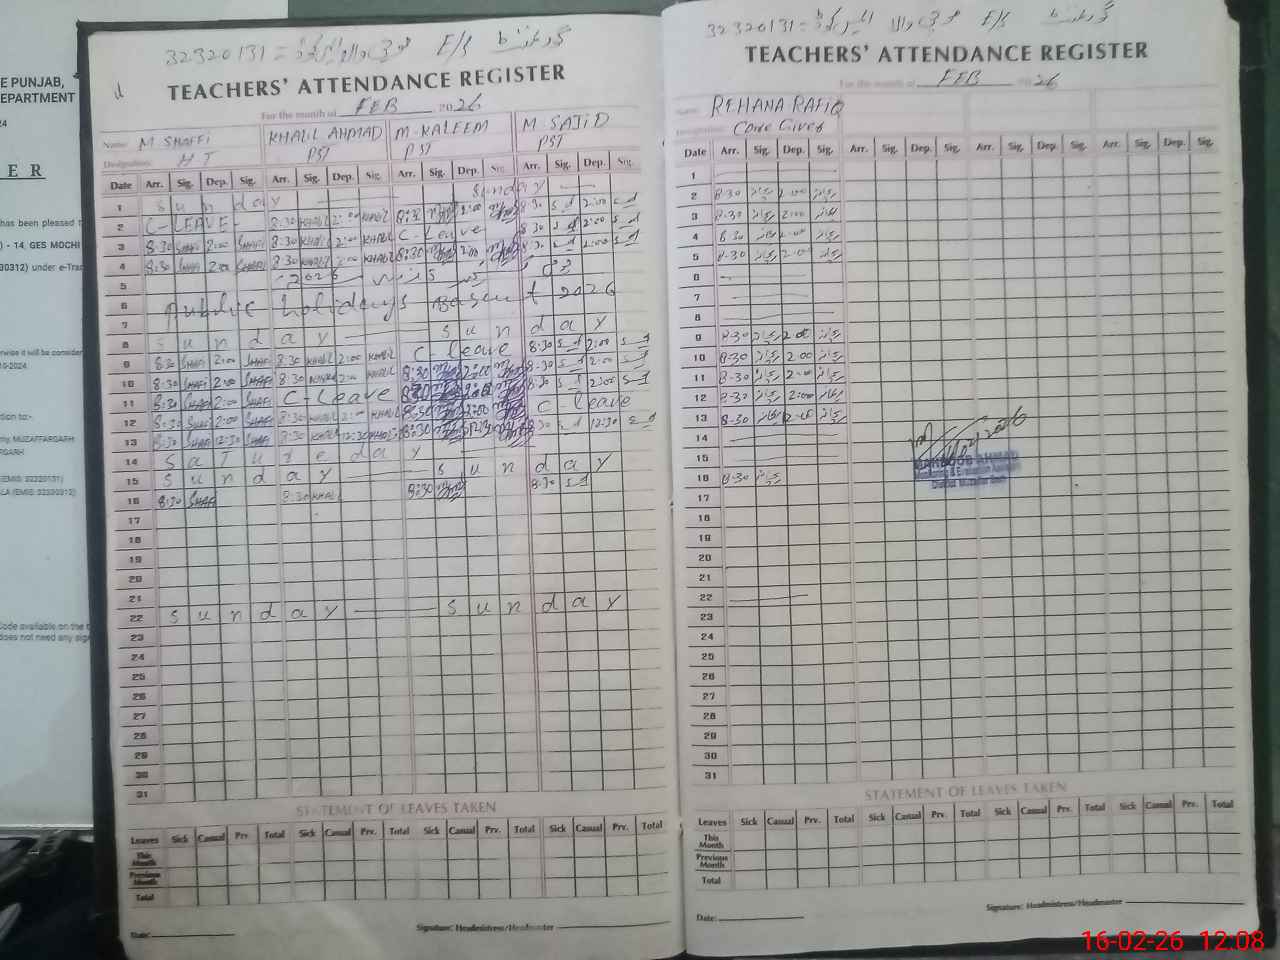 E PUNJAB,
EPARTMENT
24
E R
has been pleased t
) - 14, GES MOCHI
30312) under e-Tra
rwise it will be consider
10-2024.
tion to:-
rity, MUZAFFARGARH
RGARH
(EMIS: 32320131)
LA (EMIS: 32330312)
Code available on the t
does not need any sig
32320131 = E/S
TEACHERS' ATTENDANCE REGISTER
For the month of FEB 2026
Name: M SHAFFI KHALIL AHMAD M-KALEEM M-SAJID
Designation: HT PST PST PST
Date Arr. Sig. Dep. Sig. Arr. Sig. Dep. Sig. Arr. Sig. Dep. Sig. Arr. Sig. Dep. Sig.
1 Sunday Sunday
2 C-LEAVE- 8:30 KHALIL 2:00 KHALIL 8:30 2:00 8:30 Sd 2:00 Sd
3 8:30 SHAFI 2:00 SHAFI 8:30 KHALIL 2:00 KHALIL C-Leave 8:30 Sd 2:00 Sd
4 8:30 SHAFI 2:00 SHAFI 8:30 KHALIL 2:00 KHALIL 8:30 2:00 8:30 Sd 2:00 Sd
5 2026
6 Public holidays Basant 2026
7
8 Sunday Sunday
9 8:30 SHAFI 2:00 SHAFI 8:30 KHALIL 2:00 KHALIL C-leave 8:30 Sd 2:00 Sd
10 8:30 SHAFI 2:00 SHAFI 8:30 KHALIL 2:00 KHALIL 8:30 2:00 8:30 Sd 2:00 Sd
11 8:30 SHAFI 2:00 SHAFI C-Leave 8:30 2:00 8:30 Sd 2:00 Sd
12 8:30 SHAFI 2:00 SHAFI 8:30 KHALIL 2:00 KHALIL 8:30 2:00 C-leave
13 8:30 SHAFI 12:30 SHAFI 8:30 KHALIL 12:30 KHALIL 8:30 12:30 8:30 Sd 12:30 Sd
14 SaTureday
15 Sunday Sunday
16 8:30 SHAFI 8:30 KHALIL 8:30 8:30 Sd
17
18
19
20
21
22 Sunday Sunday
23
24
25
26
27
28
29
30
31
STATEMENT OF LEAVES TAKEN
Leaves Sick Casual Prv. Total Sick Casual Prv. Total Sick Casual Prv. Total Sick Casual Prv. Total
This Month
Previous Month
Total
Date: Signature: Headmistress/Headmaster
32320131 = E/S
TEACHERS' ATTENDANCE REGISTER
For the month of FEB 2026
Name: REHANA RAFIQ
Designation: Care Giver
Date Arr. Sig. Dep. Sig. Arr. Sig. Dep. Sig. Arr. Sig. Dep. Sig. Arr. Sig. Dep. Sig.
1
2 8-30 2:00
3 8-30 2:00
4 8-30 2:00
5 8-30 2:00
6
7
8
9 8-30 2:00
10 8-30 2:00
11 8-30 2:00
12 8-30 2:00
13 8-30 2:00
14
15
16 8-30
17
18
19
20
21
22
23
24
25
26
27
28
29
30
31
MAHBOOB AHMAD
STATEMENT OF LEAVES TAKEN
Leaves Sick Casual Prv. Total Sick Casual Prv. Total Sick Casual Prv. Total Sick Casual Prv. Total
This Month
Previous Month
Total
Date: Signature: Headmistress/Headmaster
16-02-26 12:08